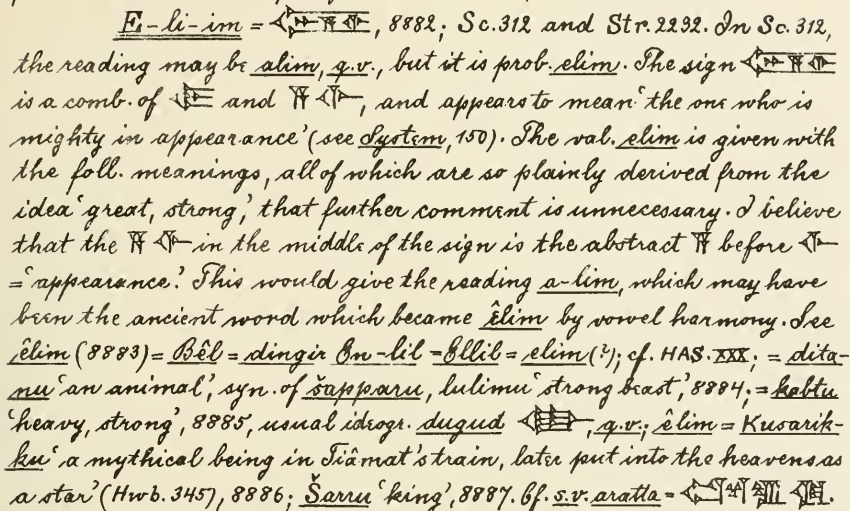 E-li-im = , 8882; Sc. 312 and Str. 2232. In Sc. 312,
the reading may be alim, q.v., but it is prob. elim. The sign
is a comb. of and 𒀀 𒅆, and appears to mean 'the one who is
mighty in appearance' (see System, 150). The val. elim is given with
the foll. meanings, all of which are so plainly derived from the
idea 'great, strong,' that further comment is unnecessary. I believe
that the 𒀀 𒅆 in the middle of the sign is the abstract 𒀀 before 𒅆
= 'appearance.' This would give the reading a-lim, which may have
been the ancient word which became êlim by vowel harmony. See
êlim (8883) = Bêl = dingir En-lil = Ellil = elim (?); cf. HAS. XXX; = dita-
nu 'an animal', syn. of šapparu, lulimu 'strong beast,' 8884; = kabtu
'heavy, strong', 8885, usual ideogr. dugud , q.v.; êlim = Kusarik-
ku 'a mythical being in Tiâmat's train, later put into the heavens as
a star' (Hwb. 345), 8886; Šarru 'king', 8887. Cf. s.v. aratta = .